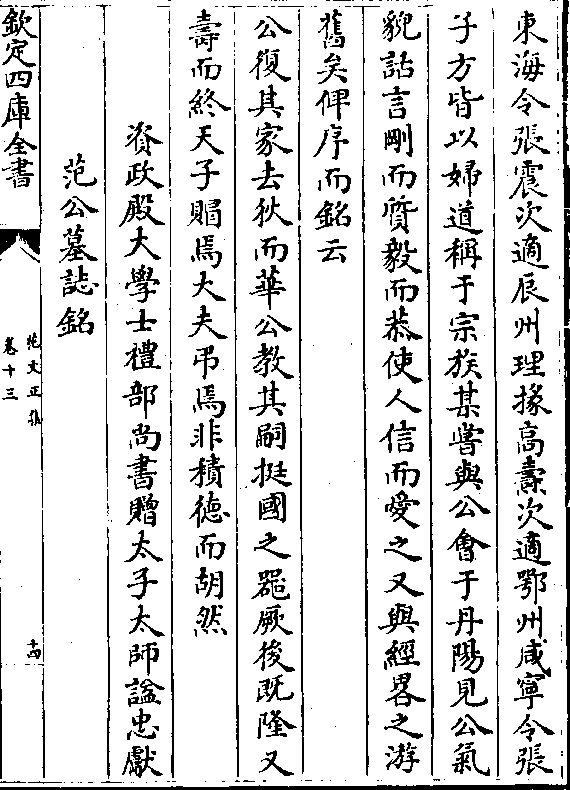 東海令張震次適辰州理掾高壽次適鄂州咸寧令張
子方皆以婦道稱于宗族某嘗與公㑹于丹陽見公氣
貌話言剛而質毅而恭使人信而愛之又與經畧之游
舊矣俾序而銘云
公復其家去狄而華公教其嗣挺國之器厥後既隆又
壽而終天子賵焉大夫弔焉非積徳而胡然
資政殿大學士禮部尚書贈太子太師諡忠獻
范公墓誌銘
欽定四庫全書
范文正集
卷十三
十四